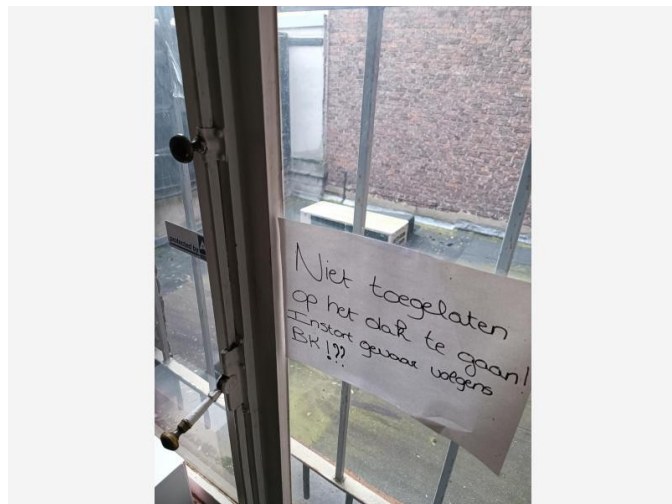 protected by
Niet toegelaten
op het dak te gaan!
Instort gevaar volgens
BK !??